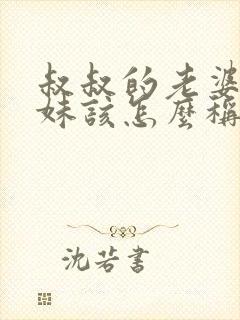 叔叔的老婆
妹該怎麼稱
沈若書